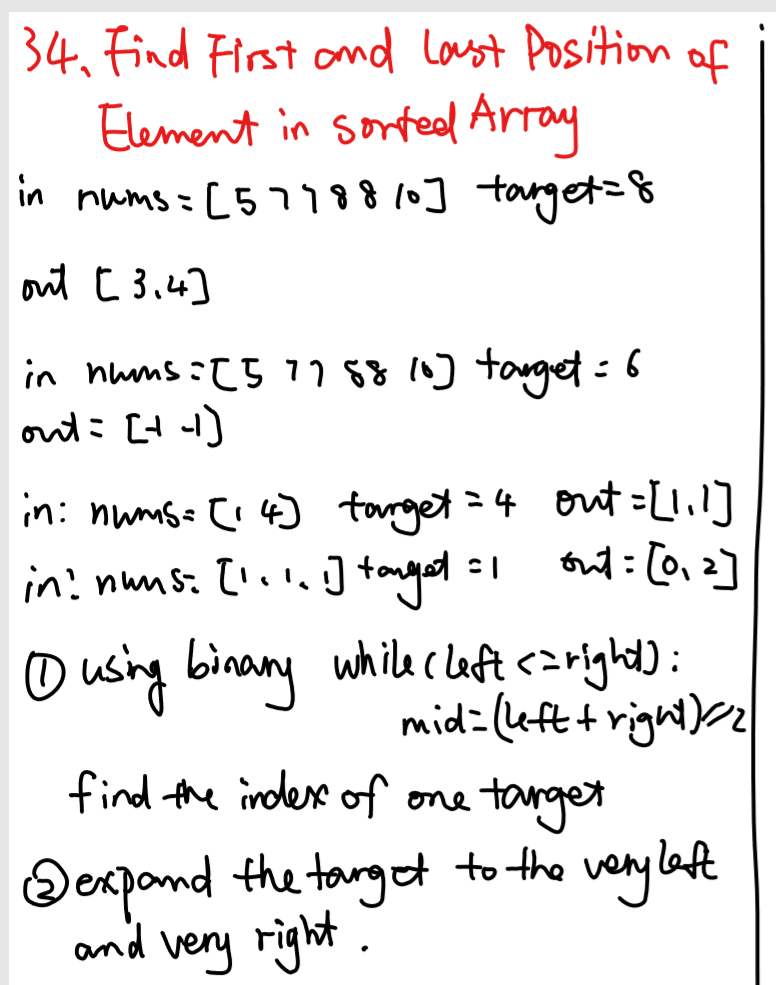 34. Find First and Last Position of
Element in sorted Array
in nums = [5 7 7 8 8 10] target=8
out [3.4]
in nums = [5 7 7 8 8 10] target = 6
out = [-1 -1]
in: nums = [1 4] target = 4 out = [1,1]
in: nums = [1, 1, 1] target = 1 out = [0, 2]
① using binary while (left <= right):
mid = (left + right)//2
find the index of one target
② expand the target to the very left
and very right.